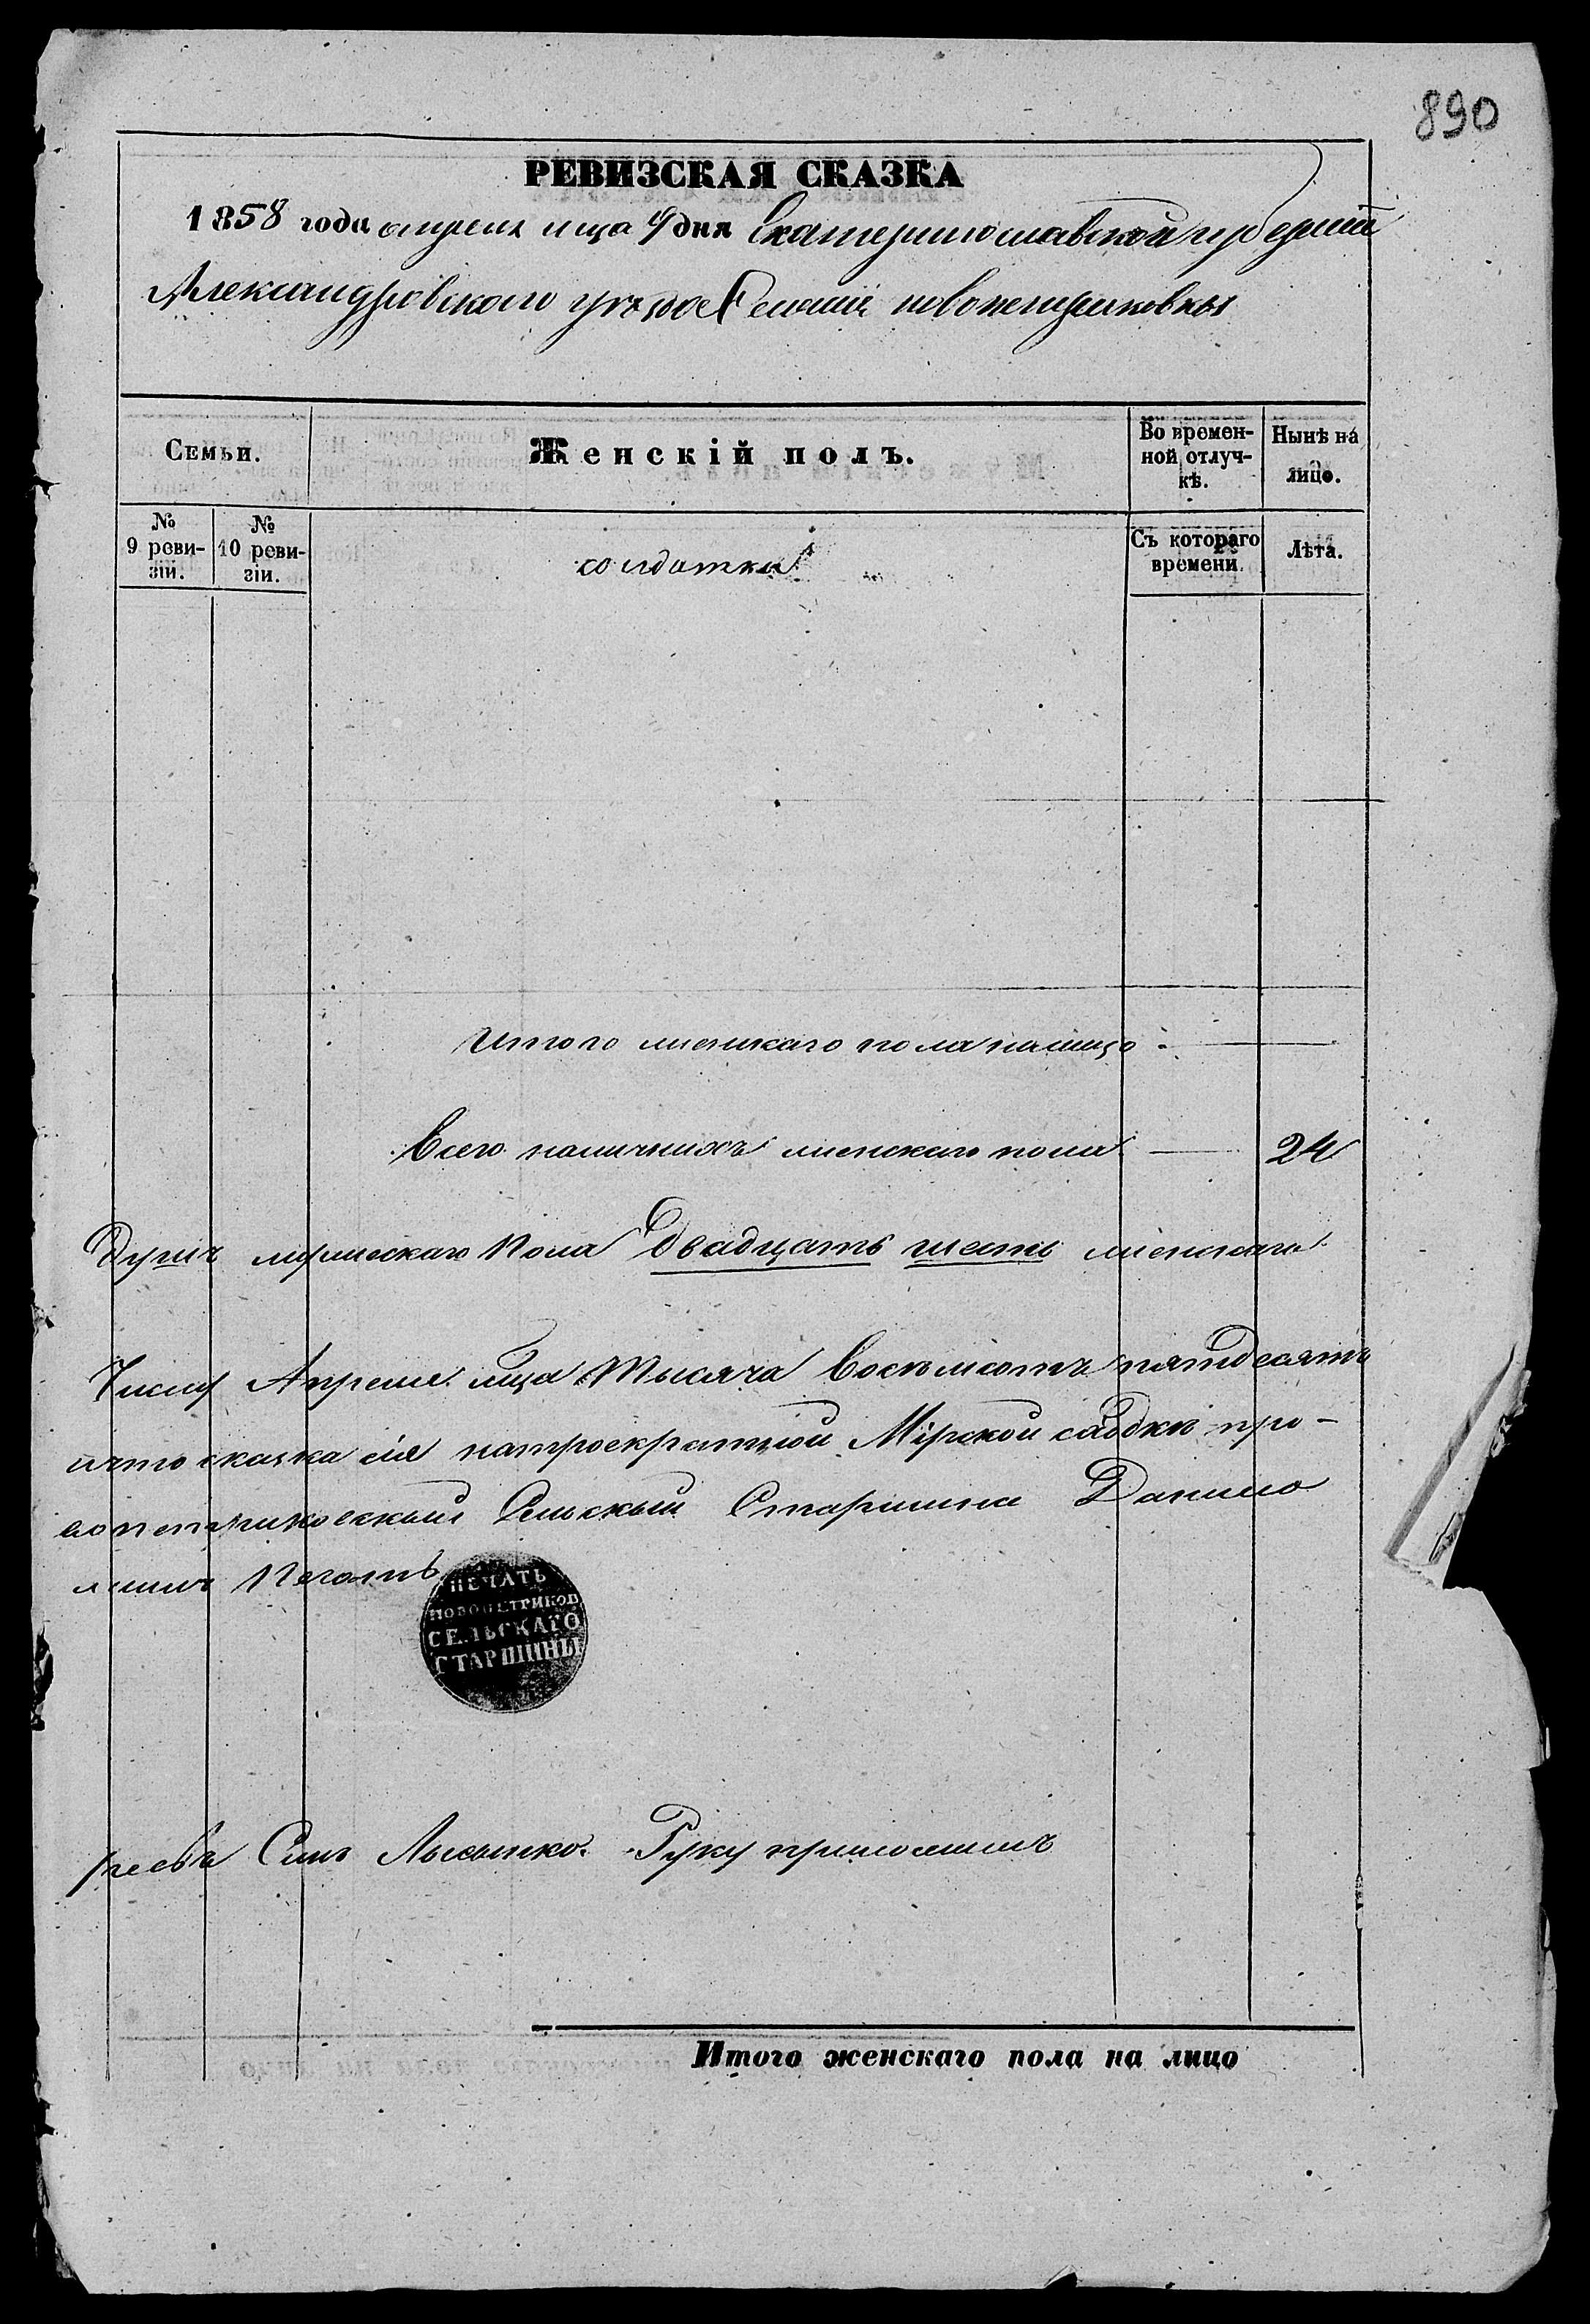 890
РЕВИЗСКАЯ СКАЗКА
1858 года апреля мца 4 дня Екатеринославской губернии
Александровского уезда Селения новопетриковки
Семьи.
Женскій полъ.
Во времен-
ной отлуч-
кѣ.
Нынѣ на
лицо.
№
9 реви-
зіи.
№
10 реви-
зіи.
солдатки
Съ котораго
времени.
Лѣта.
Итого женскаго пола налицо
Всего наличныхъ женскаго пола 24
Душъ мужескаго пола Двадцать шесть женскаго
Числу Апреля мца Тысяча Восемьсотъ пятдесятъ
что сказка сія натроекратной Мірской сходки про-
вопетриковский Сельский Старшина Данило
жилъ Печать
ПЕЧАТЬ
НОВОПЕТРИКОВ
СЕЛЬСКАГО
СТАРШИНЫ
Сынъ Лысенко Руку приложилъ
Итого женскаго пола на лицо